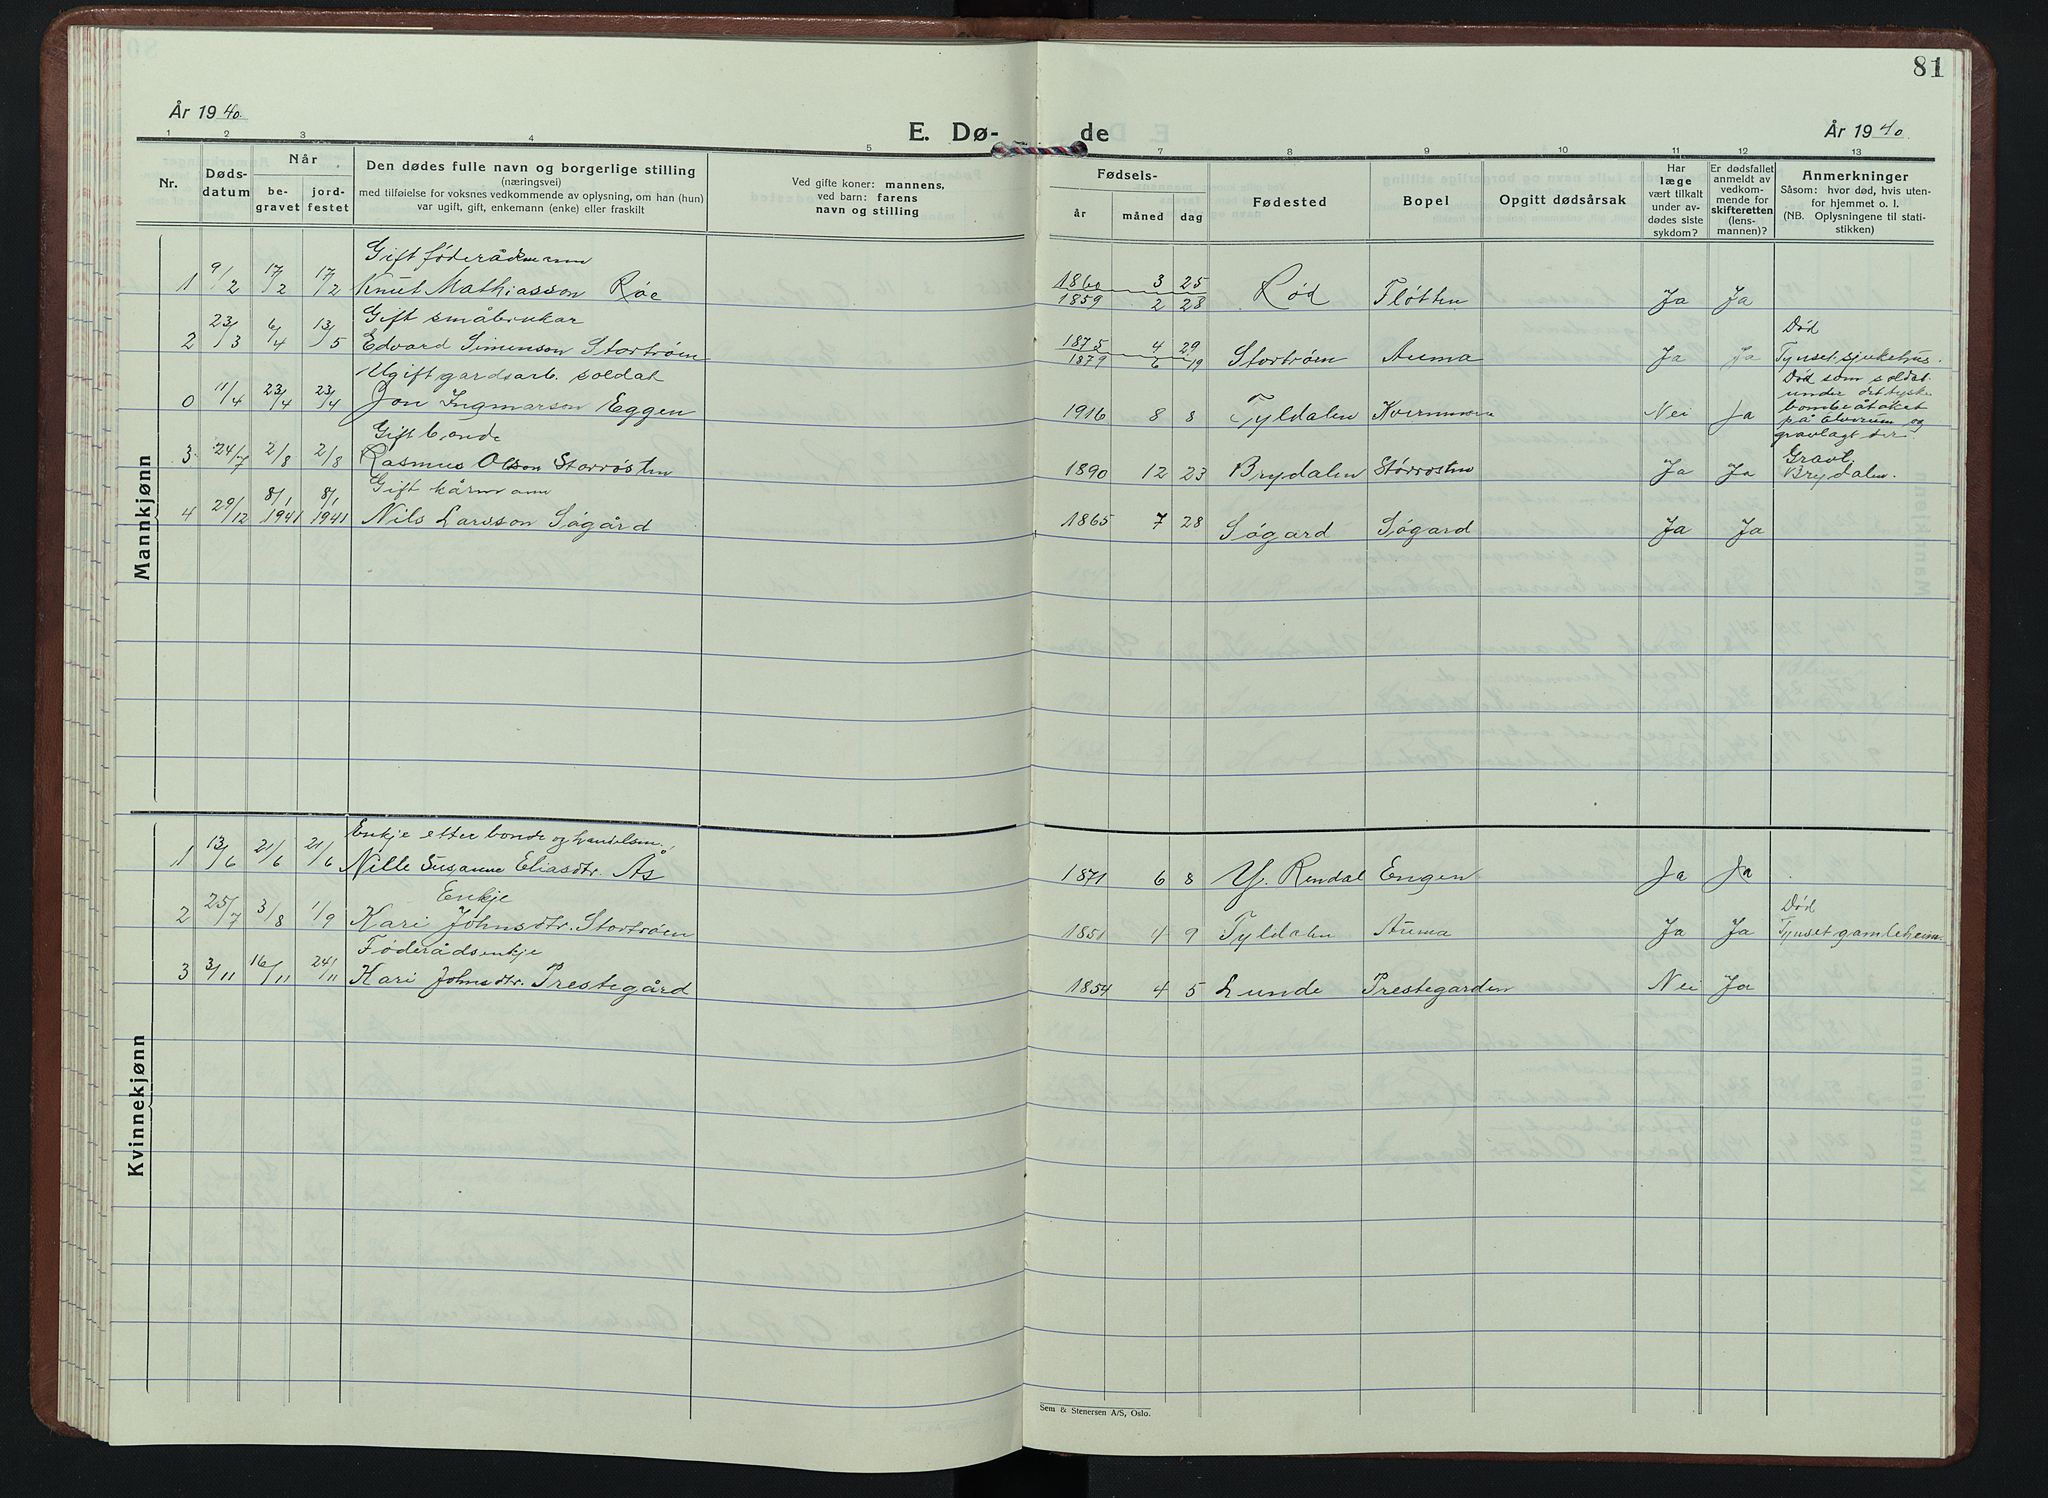 81
År 1940.
E. Dø-de
År 1940.
1 2 3 4 5 7 8 9 10 11 12 13
Nr.
Døds-datum
Når
be-gravet
jord-festet
Den dødes fulle navn og borgerlige stilling
(næringsvei)
med tilføielse for voksnes vedkommende av oplysning, om han (hun)
var ugift, gift, enkemann (enke) eller fraskilt
Ved gifte koner: mannens,
ved barn: farens
navn og stilling
Fødsels-
år måned dag
Fødested
Bopel
Opgitt dødsårsak
Har
læge
vært tilkalt
under av-
dødes siste
sykdom?
Er dødsfallet
anmeldt av
vedkom-
mende for
skifteretten
(lens-
mannen)?
Anmerkninger
Såsom: hvor død, hvis uten-
for hjemmet o. l.
(NB. Oplysningene til stati-
stikken)
Mannkjønn
Gift føderådmann
1 9/2 17/2 17/2 Knut Mathiasson Røe 1860 3 25 Rød Fløtten Ja Ja
1859 2 28
Gift småbrukar
2 23/3 6/4 13/5 Edvard Simenson Stortrøen 1875 4 29 Stortrøen Auma Ja Ja Død
1879 6 19 Tynset sjukehus.
Ugift gardsarb. soldat
0 11/4 23/4 23/4 Jon Ingmarson Eggen 1916 8 8 Tyldalen Kvernmoen Nei Ja Død som soldat
under det tyske
bombeåtaket
på Elverum og
gravlagt der.
Gift bonde
3 24/7 2/8 2/8 Rasmus Olson Storrøsten 1890 12 23 Brydalen Storrosten Ja Ja Gravl.
Brydalen.
Gift kårmann
4 29/12 8/1 1941 8/1 1941 Nils Larsson Søgård 1865 7 28 Søgard Søgard Ja Ja
Kvinnekjønn
Enkje etter bonde og handelsm.
1 13/6 21/6 21/6 Nille Susanne Eliasdtr. Ås 1871 6 8 Y. Rendal Engen Ja Ja
Enkje
2 25/7 3/8 1/9 Kari Johnsdtr. Stortrøen 1851 4 9 Tyldalen Auma Ja Ja Død
Tynset gamleheim.
Føderådsenkje
3 3/11 16/11 24/11 Kari Johnsdtr. Prestegård 1854 4 5 Lunde Prestegarden Nei Ja
Sem & Stenersen A/S, Oslo.